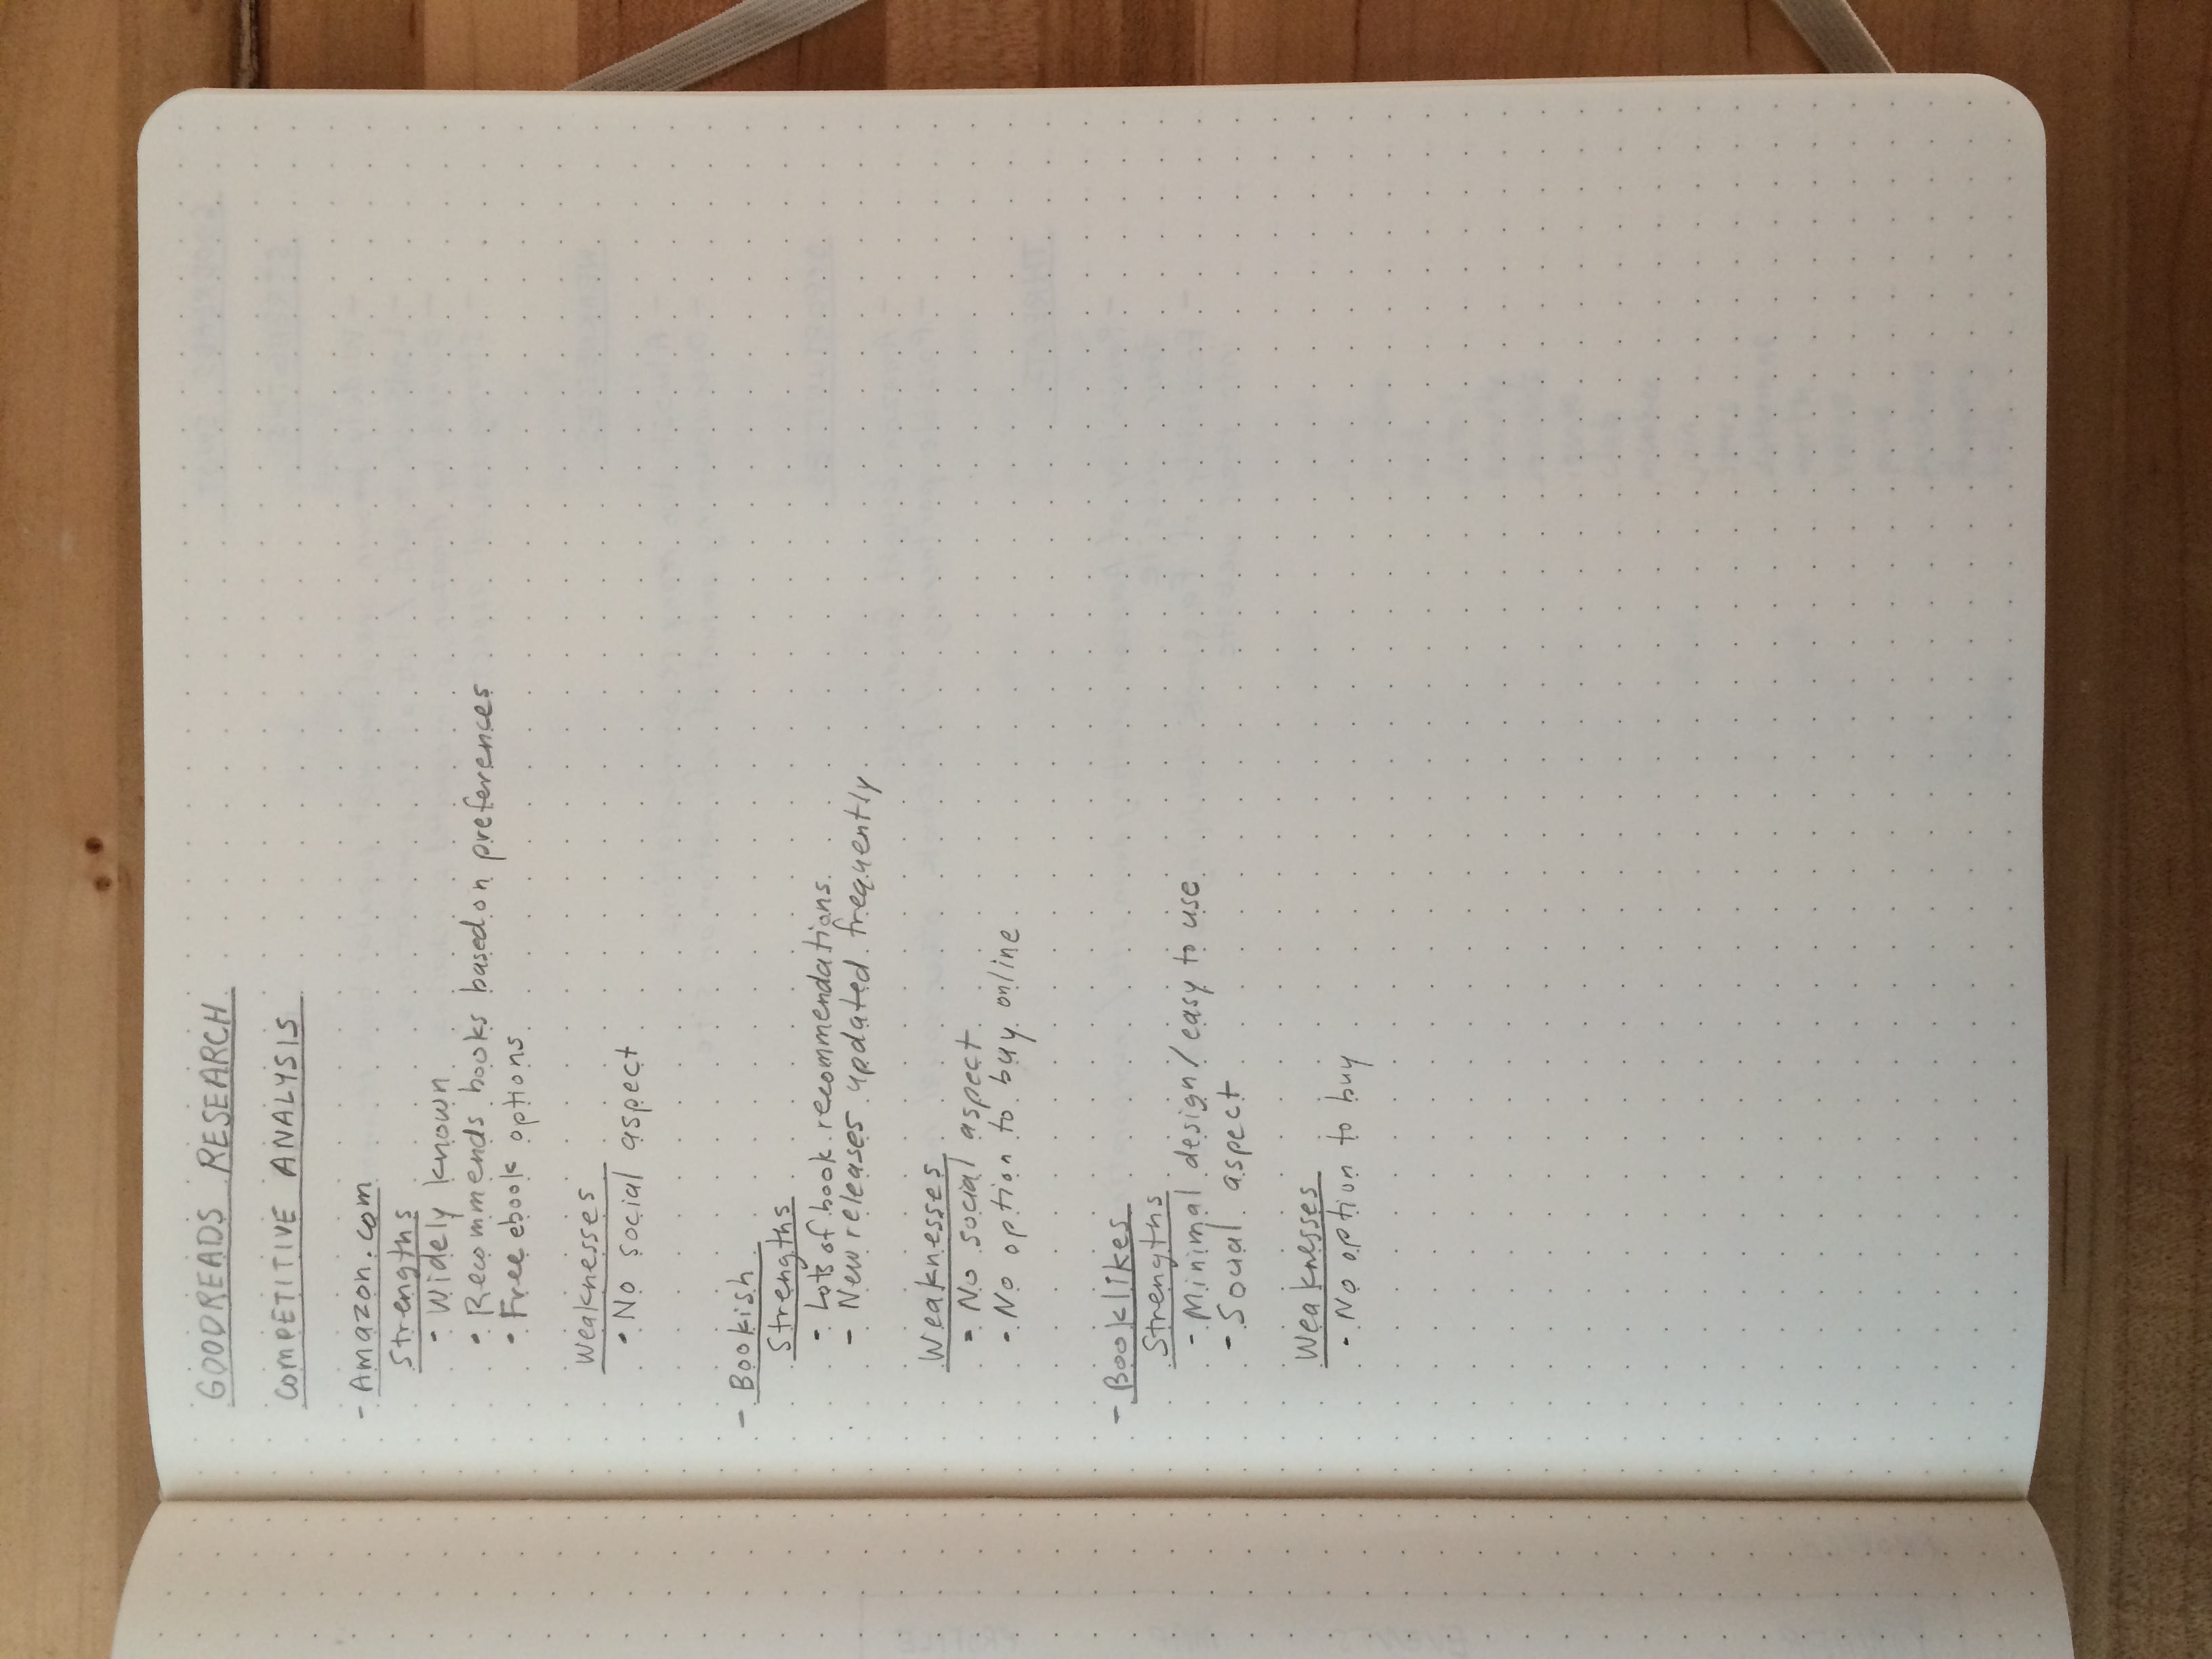 GOODREADS RESEARCH
COMPETITIVE ANALYSIS
- Amazon.com
Strengths
- Widely known
• Recommends books based on preferences
• Free ebook options
Weaknesses
• No social aspect
- Bookish
Strengths
- Lots of book recommendations
- New releases updated frequently
Weaknesses
- No social aspect
- No option to buy online
- Booklikes
Strengths
- Minimal design / easy to use
- Social aspect
Weaknesses
- No option to buy